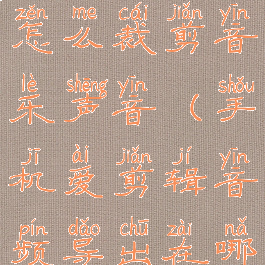 zěn me cái jiǎn yīn
怎么裁剪音
lè shēng yīn shǒu
乐声音（手
jī ài jiǎn jí yīn
机爱剪辑音
pín dǎo chū zài nǎ
频导出在哪